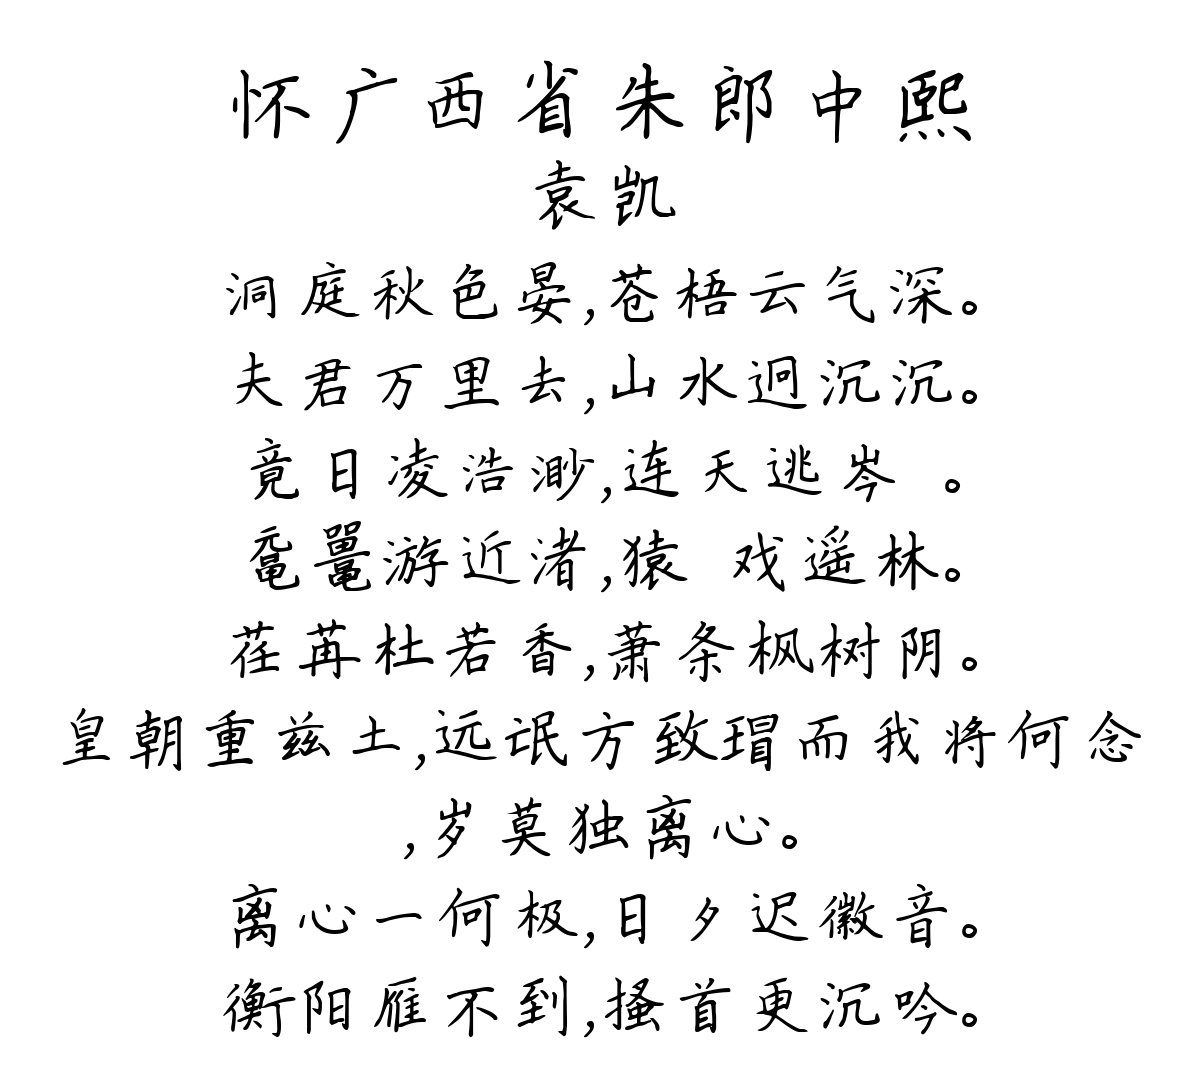 怀广西省朱郎中熙
袁凯
洞庭秋色晏,苍梧云气深。
夫君万里去,山水迥沉沉。
竟日凌浩渺,连天逃岑 。
鼋鼍游近渚,猿 戏遥林。
荏苒杜若香,萧条枫树阴。
皇朝重兹土,远氓方致瑁而我将何念
,岁莫独离心。
离心一何极,日夕迟徽音。
衡阳雁不到,搔首更沉吟。